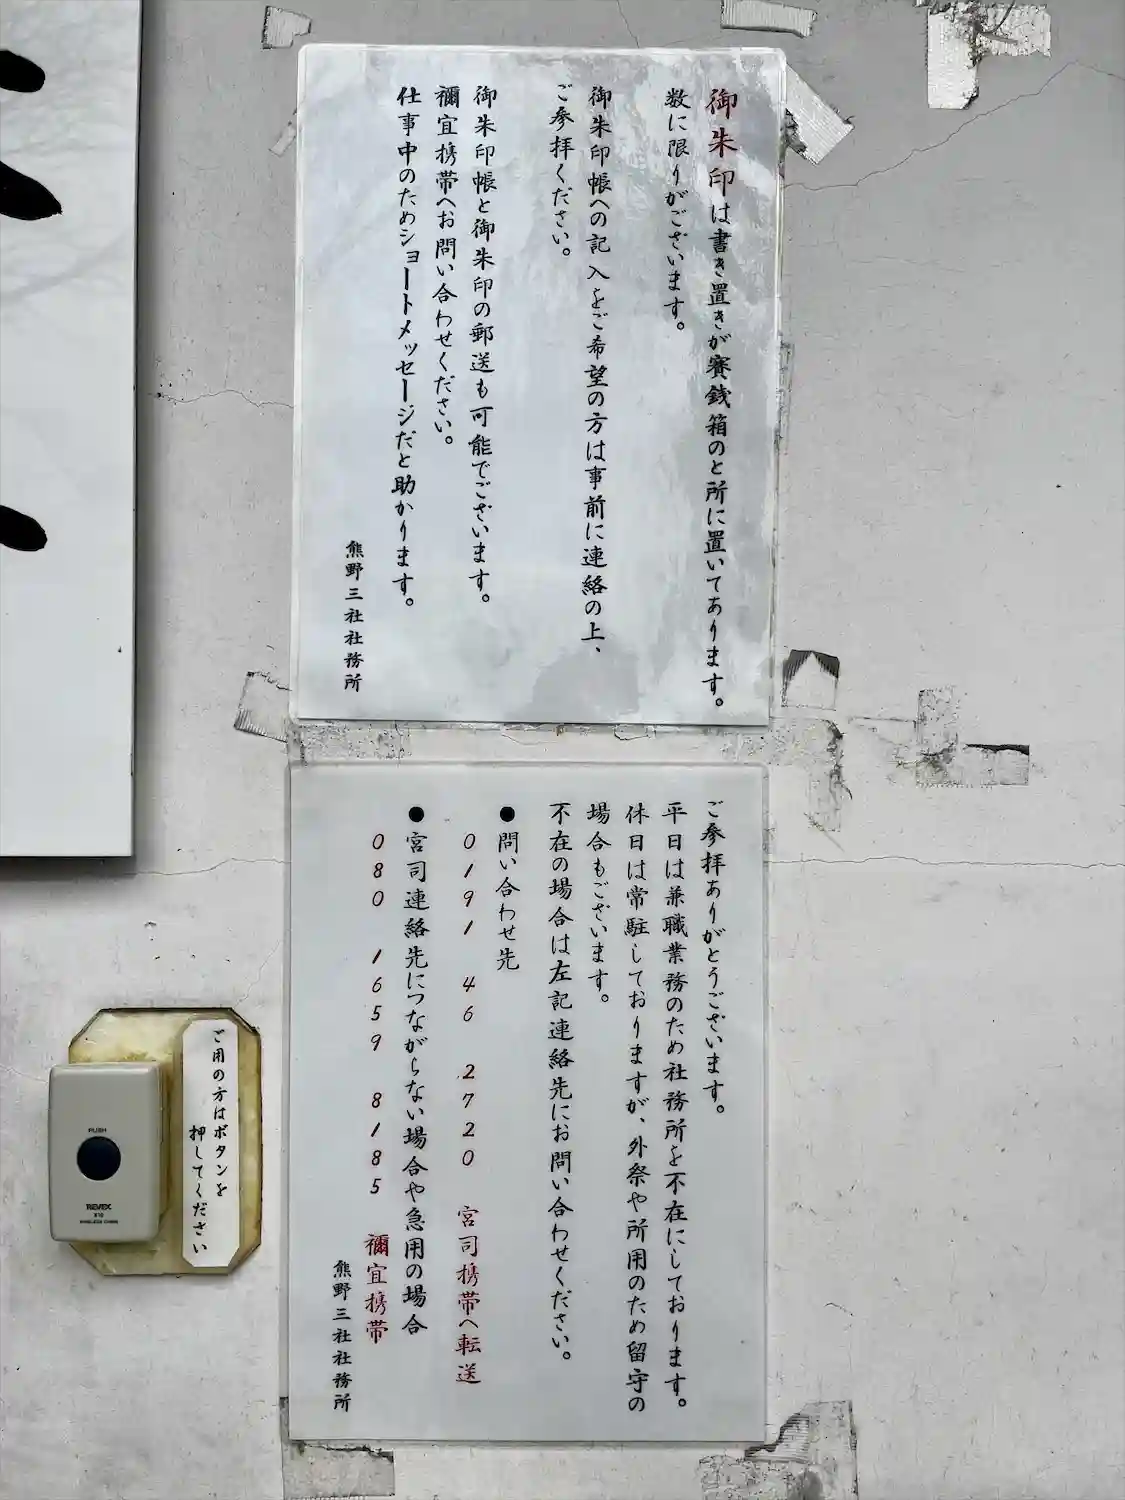 御朱印は書き置きが賽銭箱のと所に置いてあります。
数に限りがございます。
御朱印帳への記入をご希望の方は事前に連絡の上、
ご参拝ください。
御朱印帳と御朱印の郵送も可能でございます。
禰宜携帯へお問い合わせください。
仕事中のためショートメッセージだと助かります。
熊野三社社務所
ご参拝ありがとうございます。
平日は兼職業務のため社務所を不在にしております。
休日は常駐しておりますが、外祭や所用のため留守の
場合もございます。
不在の場合は左記連絡先にお問い合わせください。
●問い合わせ先
0191 46 2720 宮司携帯へ転送
●宮司連絡先につながらない場合や急用の場合
080 1659 8185 禰宜携帯
熊野三社社務所
ご用の方はボタンを
押してください
PUSH
REVEX
X10
WIRELESS CHIME